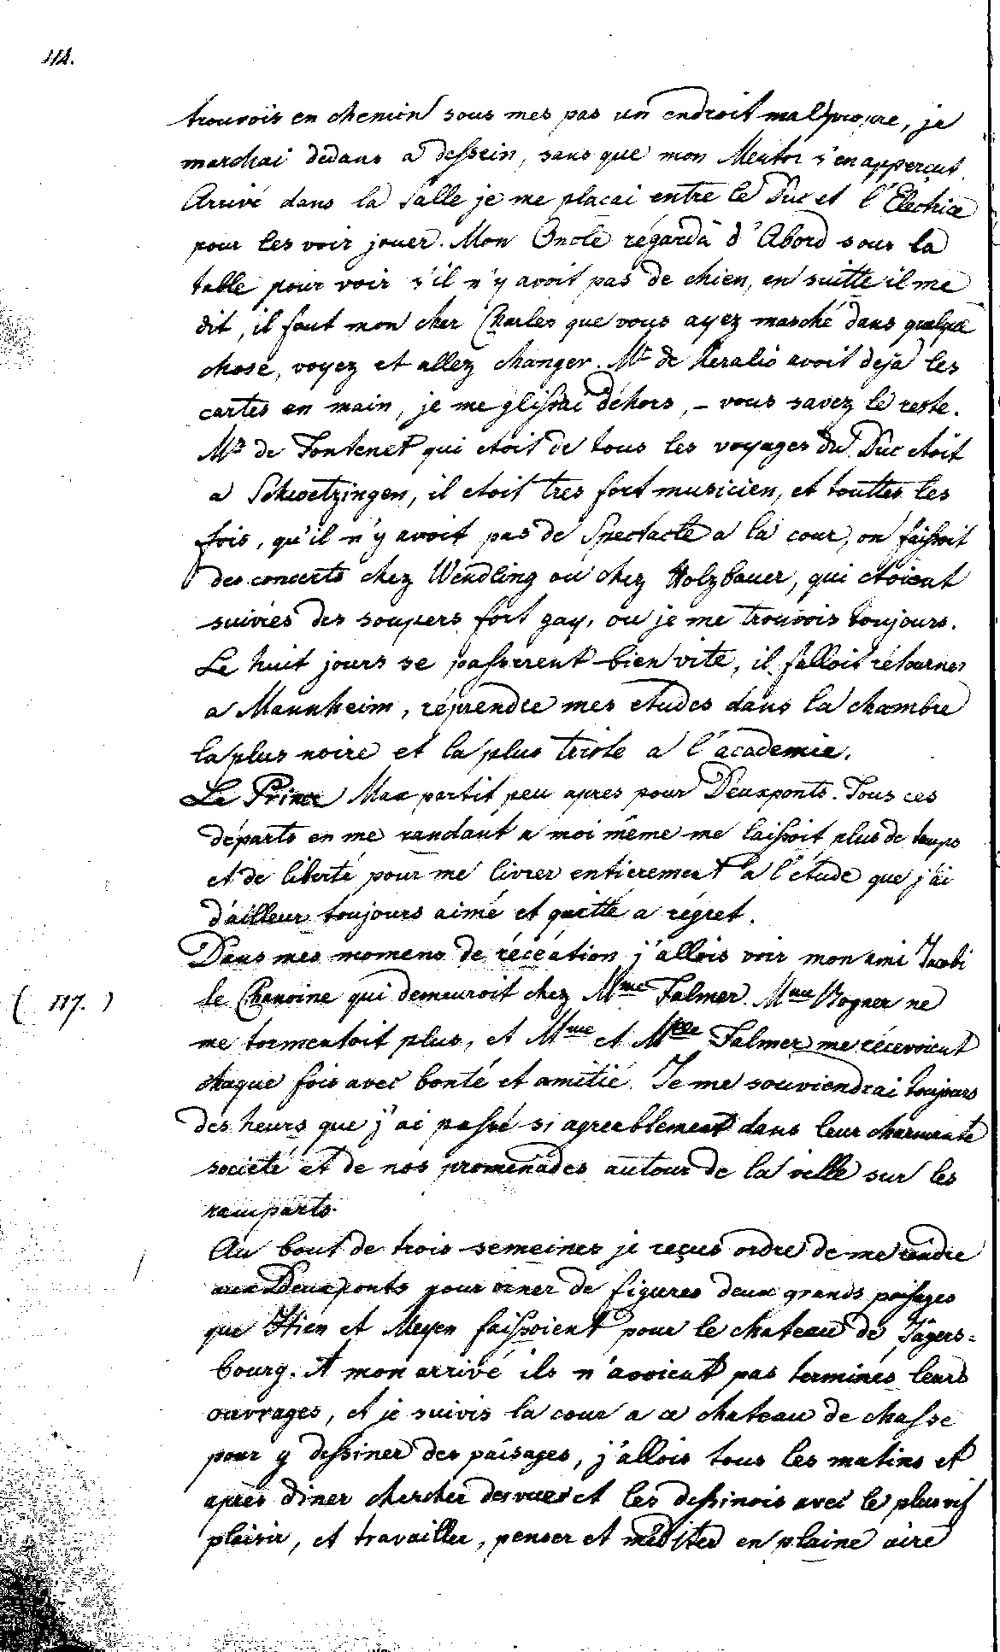 114.
trouvois en chemin sous mes pas un endroit malpropre, je
marchai dedans a dessein, sans que mon Mentor s'en apperçut.
Arrivé dans la salle je me plaçai entre le Duc et l'Electrice
pour les voir jouer. Mon Oncle régarda d'Abord sous la
table pour voir s'il n'y avoit pas de chien, en suitte il me
dit, il faut mon cher Charles que vous ayez marché dans quelque
chose, voyez et allez changer. Mr de Keralio avoit deja les
cartes en main, je me glissai déhors, – vous savez le reste.
Mr de Fontenet qui etoit de tous les voyages du Duc etoit
a Schwetzingen, il etoit tres fort musicien, et touttes les
fois, qu'il n'y avoit pas de Spectacle a la cour, on faissoit
des concerts chez Wendling ou chez Holzbauer, qui etoient
suivies des soupers fort gay, ou je me trouvois toujours.
Le huit jours se passerent bien vite, il falloit rétourner
a Mannheim, réprendre mes etudes dans la chambre
la plus noire et la plus triste a l'academie.
Le Prince Max partit peu apres pour Deuxponts. Tous ces
départs en me randant a moi même me laissoit plus de temps
et de liberté pour me livrer entierement a l'étude que j'ai
d'ailleur toujours aimé et quitté a régret.
Dans mes momens de récréation j'allois voir mon ami Jacobi
( 117. ) le Chanoine qui demeuroit chez Mme Falmer. Mme Bogner ne
me tormentoit plus, et Mme et Mlle Falmer me récevoient
chaque fois avec bonté et amitié. Je me souviendrai toujours
des heurs que j'ai passé si agreablement dans leur charmante
societé et de nos promenades autour de la ville sur les
ramparts.
Au bout de trois semeines je reçus ordre de me rendre
aux Deuxponts pour orner de figures deux grands paisages
que Hien et Meyer faissoient pour le chateau de Jägers=
bourg. A mon arrivé ils n'avoient pas terminés leurs
ouvrages, et je suivis la cour a ce chateau de chasse
pour y dessiner des païsages, j'allois tous les matins et
après diner chercher des vues et les dessinois avec le plus vif
plaisir, et travailler, penser et mediter en plaine aire